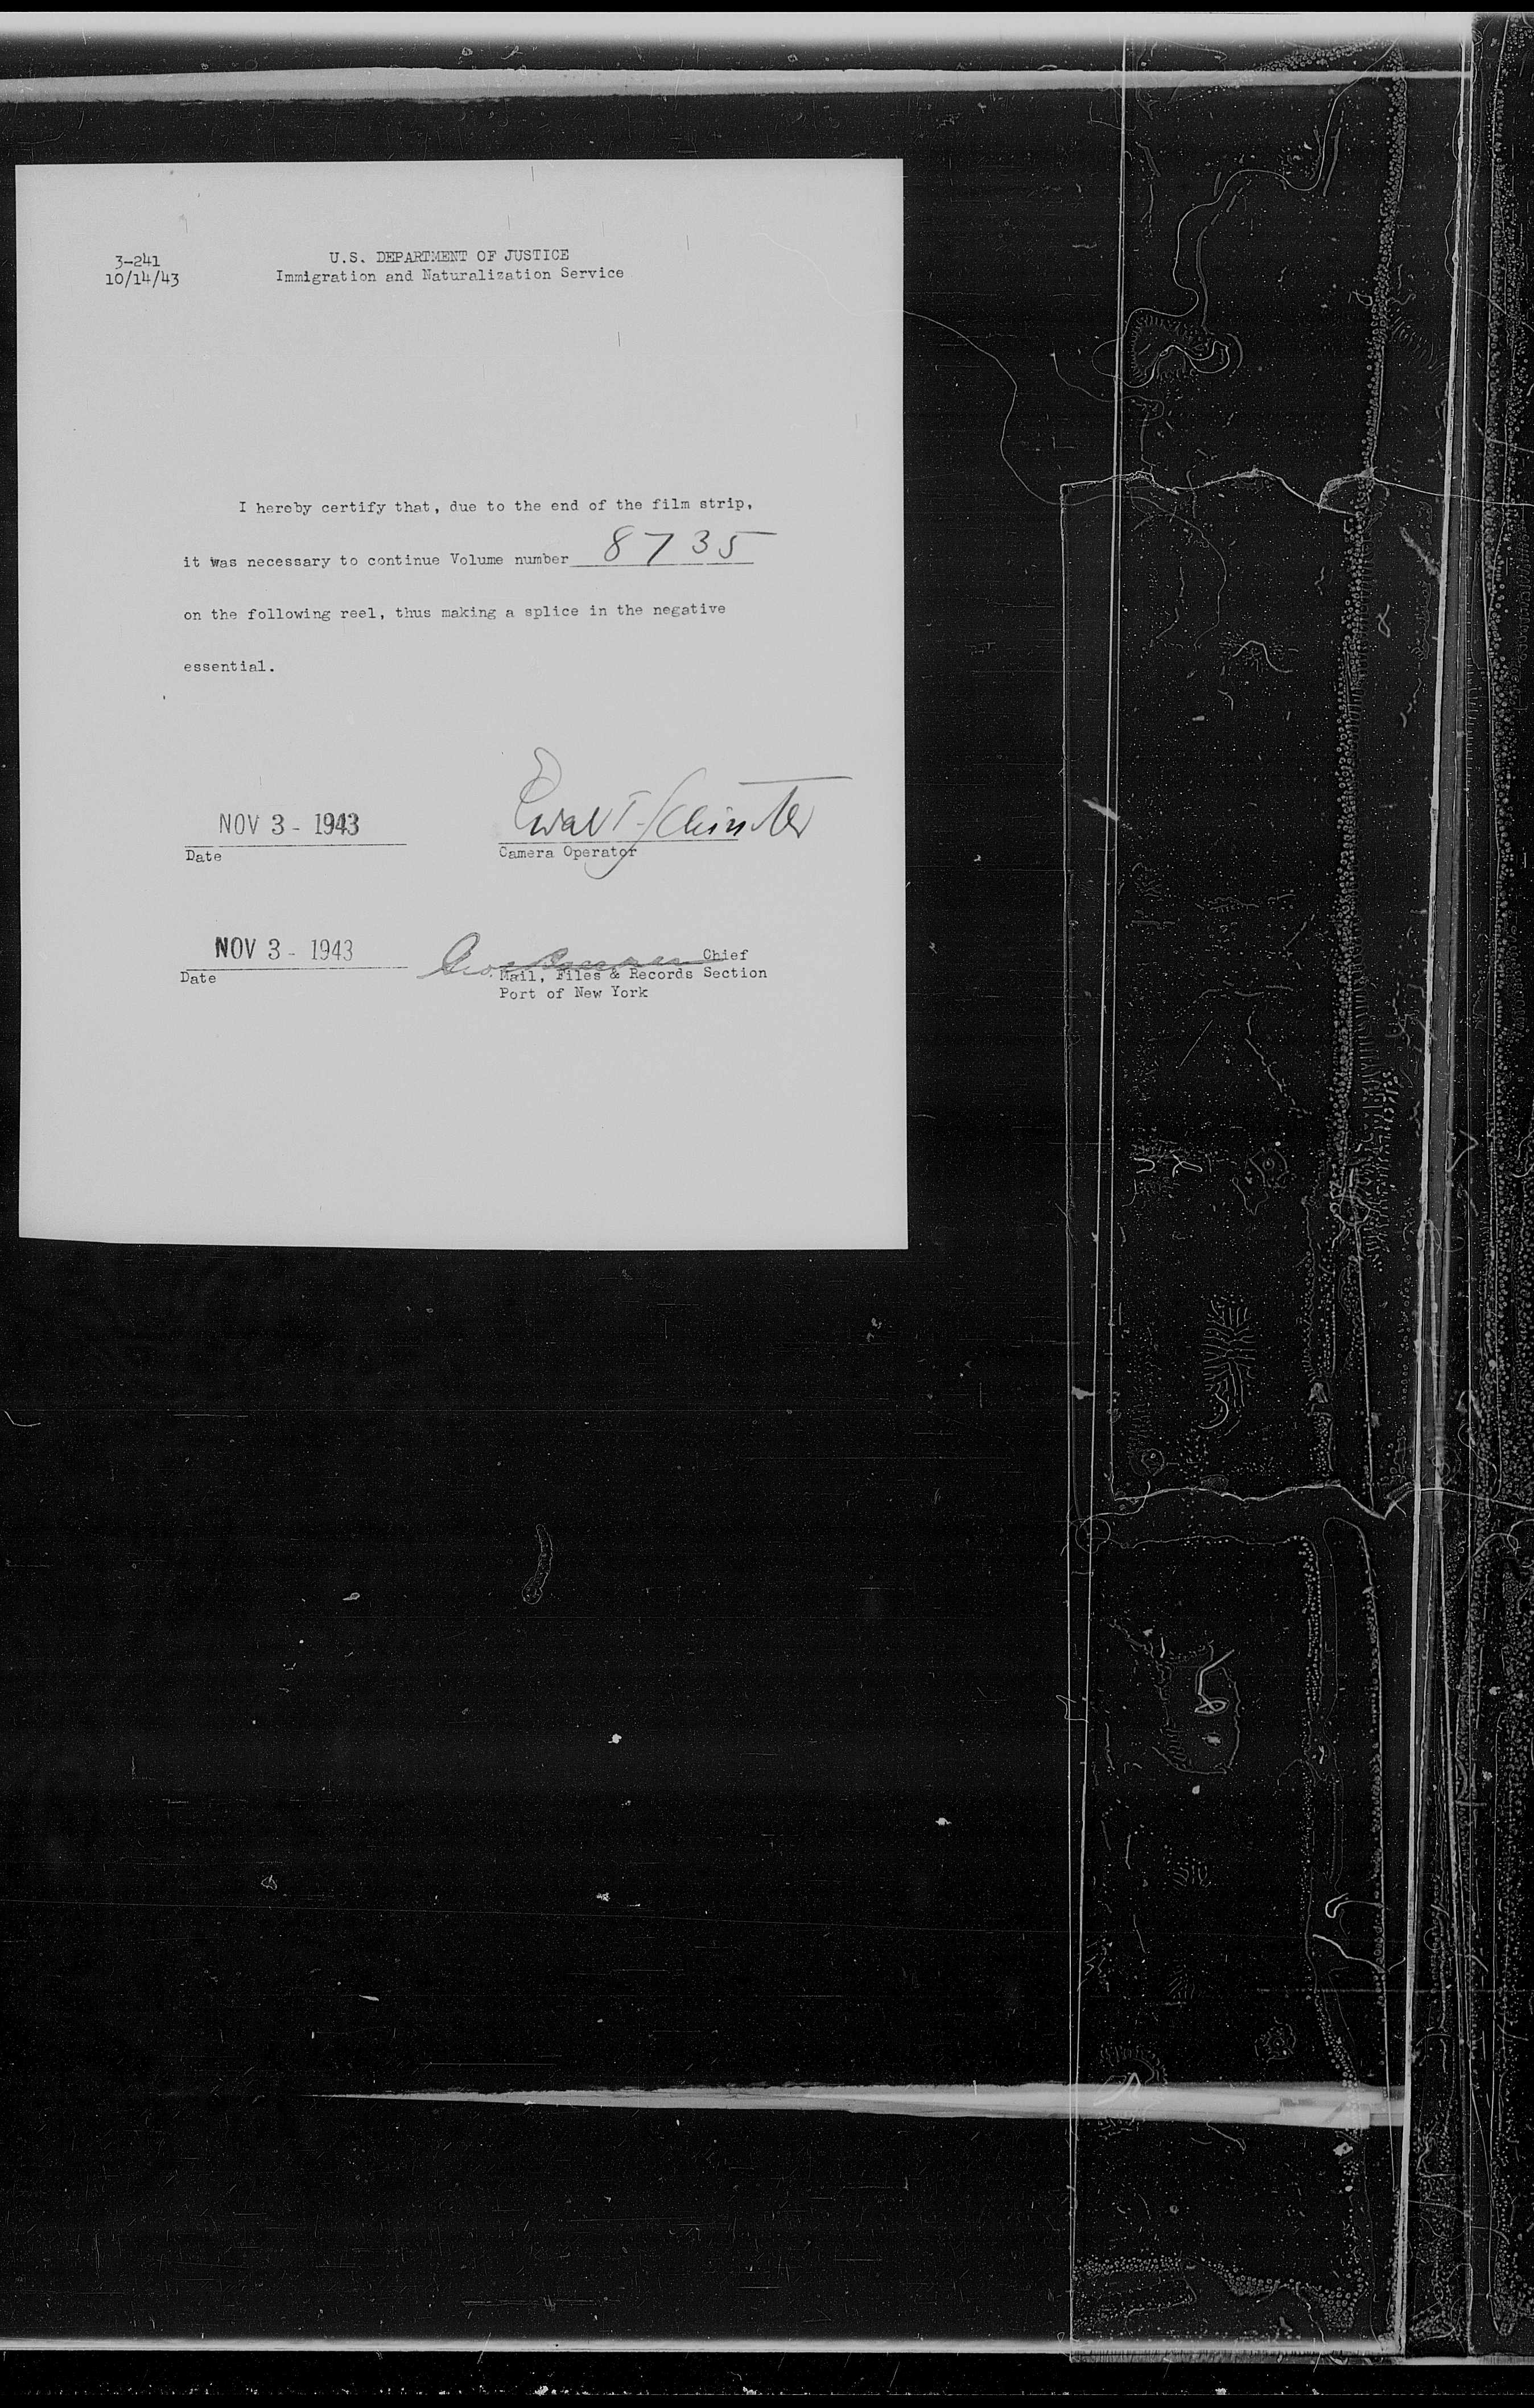 3-241
10/14/43
U.S. DEPARTMENT OF JUSTICE
Immigration and Naturalization Service
I hereby certify that, due to the end of the film strip,
it was necessary to continue Volume number 8735
on the following reel, thus making a splice in the negative
essential.
NOV 3 - 1943
Date
Camera Operator
NOV 3 - 1943
Date
Chief
Mail, Files & Records Section
Port of New York